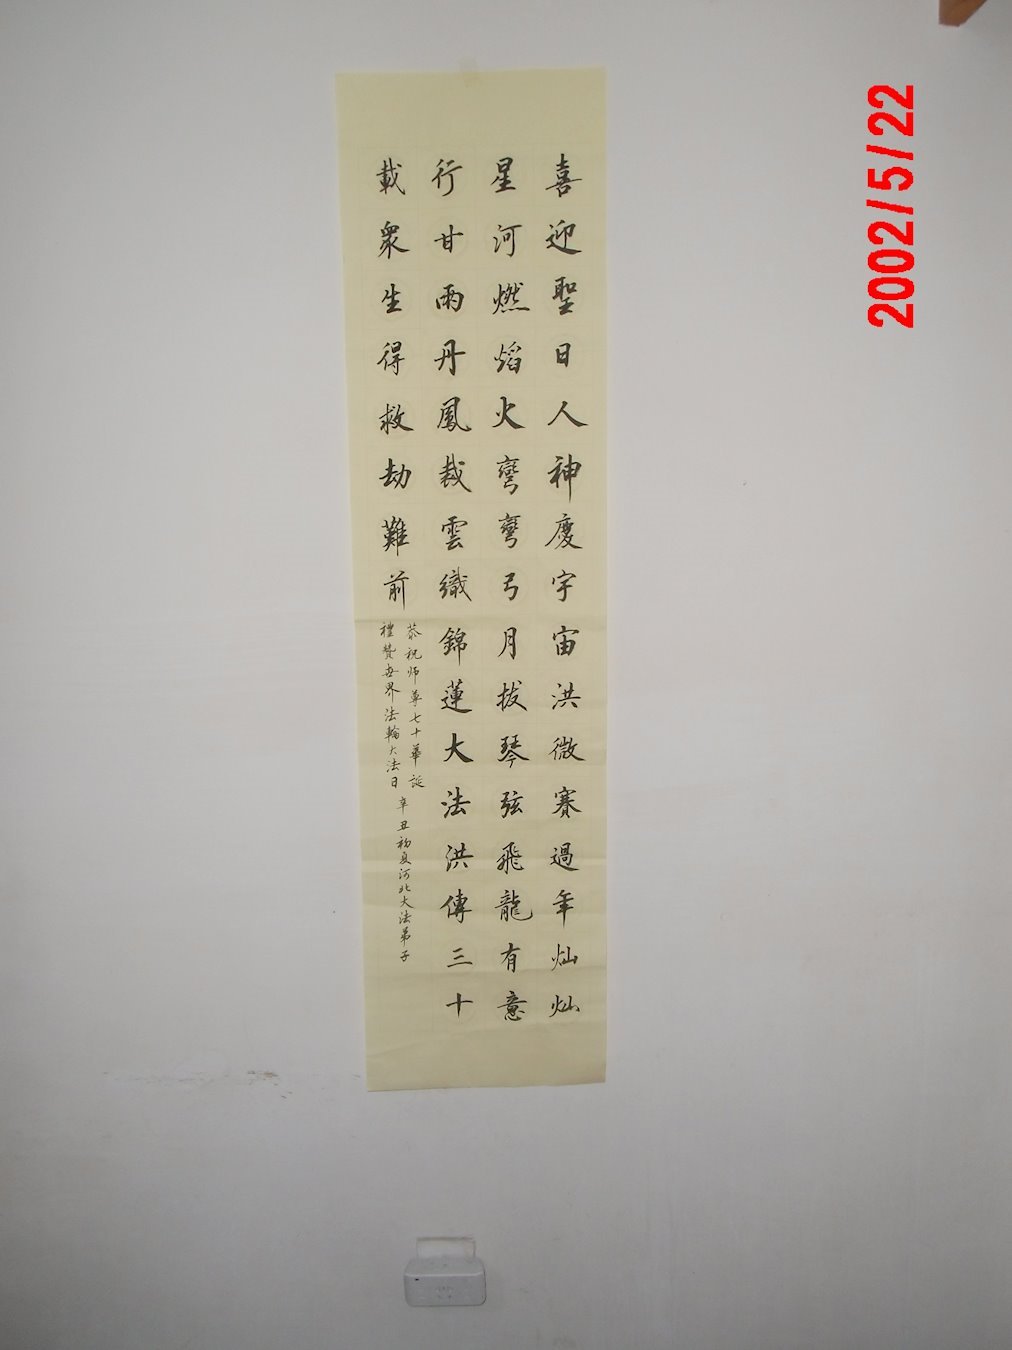 喜迎聖日人神慶宇宙洪微賽過年灿灿
星河燃焰火彎彎弓月拔琴弦飛龍有意
行甘雨丹鳳裁雲織錦蓮大法洪傳三十
載衆生得救劫難前
恭祝师尊七十華誕
禮贊世界法輪大法日
辛丑初夏河北大法弟子
2002/5/22